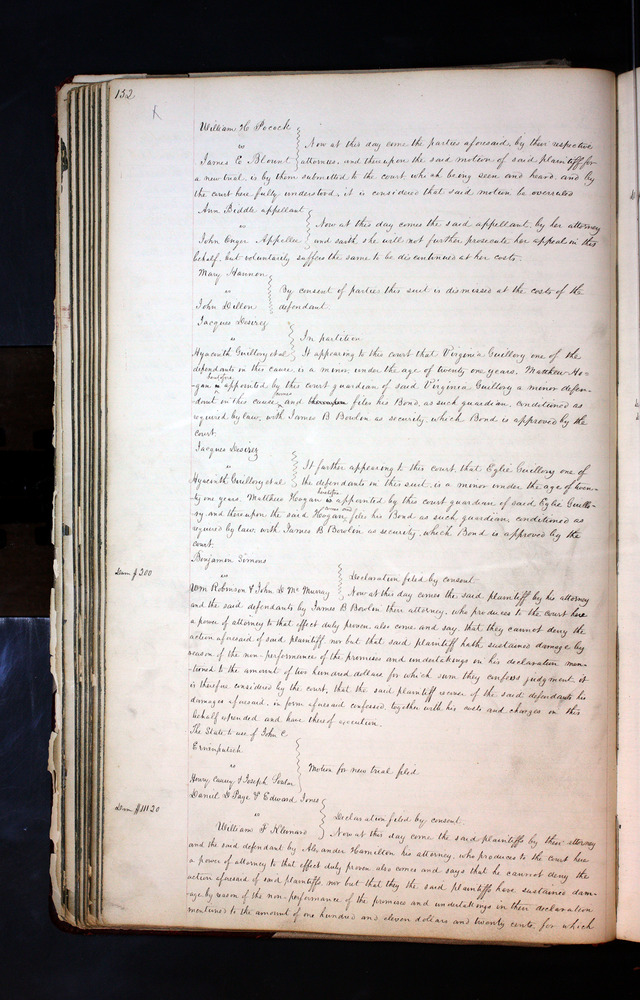 152
William H Pocock
vs
Now at this day come the parties aforesaid, by their respective
James C Blount attornies, and thereupon the said motion of said plaintiff for
a new trial is by them submitted to the court which being seen and heard, and by
the court here fully understood, it is considered that said motion be overruled
Ann Biddle appellant
vs
Now at this day comes the said appellant, by her attorney
John Unger Appellee and saith she will not further prosecute her appeal in this
behalf, but voluntarily suffers the same to be discontinued at her costs.
Mary Hannon
vs
By consent of parties this suit is dismissed at the costs of the
John Dillon defendant
Jacques Desirez
vs
In partition
Hyacinth Guillory et al It appearing to this court that Virginia Guillory one of the
defendants in this cause is a minor, under the age of twenty one years, Matthew Ho=
heretofore
gan is appointed by this court guardian of said Virginia Guillory a minor defen-
dant in this cause, and thereupon files his Bond, as such guardian, conditioned as
required by law, with James B Bowlin as security, which Bond is approved by the
court.
Jacques Desirez
vs
It further appearing to this court, that Eglie Guillory one of
Hyacinth Guillory et al the defendants in this suit, is a minor under the age of twen-
heretofore
ty one years. Matthew Hogan is appointed by this court guardian of said Eglie Guillo-
comes and
ry and thereupon the said Hogan, files his Bond as such guardian, conditioned as
required by law, with James B Bowlin as security, which Bond is approved by the
court.
Benjamin Simons
Dam $300
vs
Declaration filed by consent.
Wm Robinson & John D McMurray Now at this day comes the said plaintiff by his attorney
and the said defendants by James B Bowlin their attorney, who produces to the court here
a power of attorney to that effect duly proven, also come and say, that they cannot deny the
action aforesaid of said plaintiff, nor but that said plaintiff hath sustained damage by
reason of the non-performance of the promises and undertakings in his declaration men-
tioned to the amount of two hundred dollars for which sum they confess judgment, it
is therefore considered by the court, that the said plaintiff recover of the said defendants his
damages aforesaid, in form aforesaid confessed, together with his costs and charges in this
behalf expended and have thereof execution.
The State to use of John C
vs
Motion for new trial filed
Daniel D Page & Edward Jones
Dam $111 20
vs
Declaration filed by consent.
William F Now at this day come the said plaintiffs by their attorney
and the said defendant by Alexander Hamilton his attorney, who produces to the court here
a power of attorney to that effect duly proven also comes and says that he cannot deny the
action aforesaid of said plaintiffs, nor but that they the said plaintiffs have sustained dam-
age by reason of the non-performance of the promises and undertakings in their declaration
mentioned to the amount of one hundred and eleven dollars and twenty cents, for which